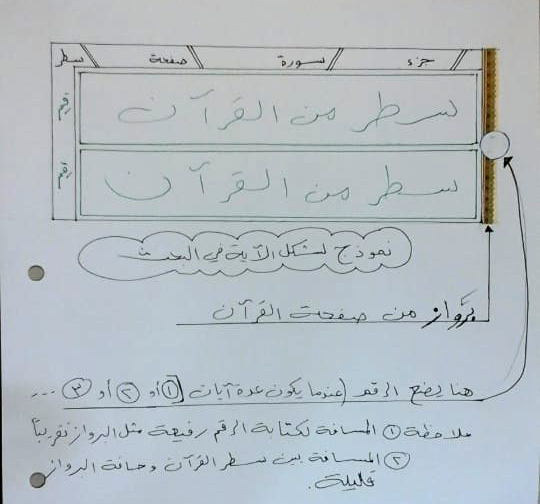 جزء // سورة // صفحة // سطر
سطر من القرآن
سطر من القرآن
نموذج لشكل الآية في البحث
برواز من صفحة القرآن
هنا يضع الرقم (عندما يكون عدة آيات [① أو ② أو ③ ...
ملاحظة ① المسافة لكتابة الرقم رفيعة مثل البرواز تقريباً
② المسافة بين سطر القرآن وحافة البرواز
قليلة.